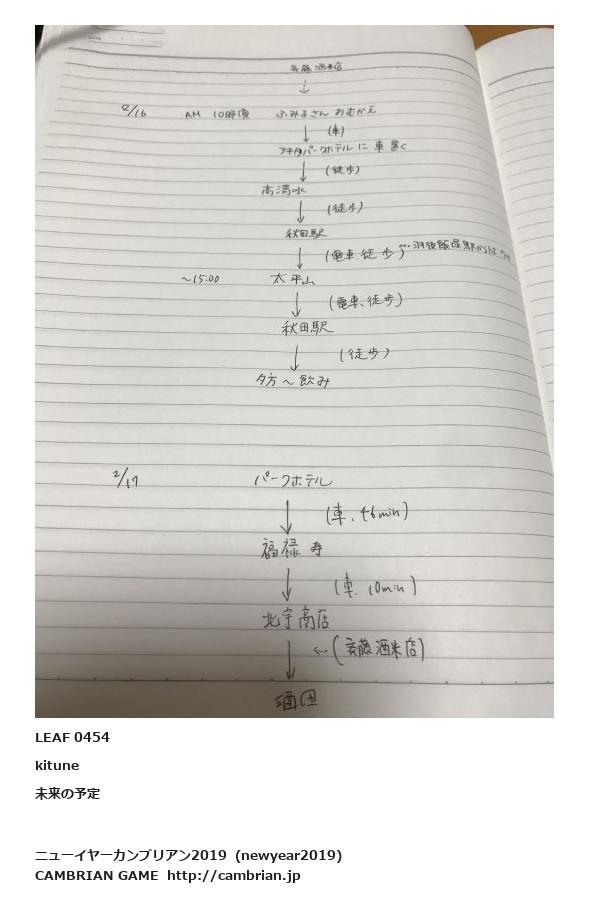 斉藤酒米店
2/16 AM 10時頃 ふみよさん おむかえ
(車)
アキタパークホテルに車置く
(徒歩)
高清水
(徒歩)
秋田駅
(電車、徒歩) ←羽後飯塚駅から
~15:00 太平山
(電車、徒歩)
秋田駅
(徒歩)
夕方~飲み
2/17 パークホテル
(車、46min)
福禄寿
(車、10min)
北宇商店
←(斉藤酒米店)
酒田
LEAF 0454
kitune
未来の予定
ニューイヤーカンブリアン2019 (newyear2019)
CAMBRIAN GAME http://cambrian.jp